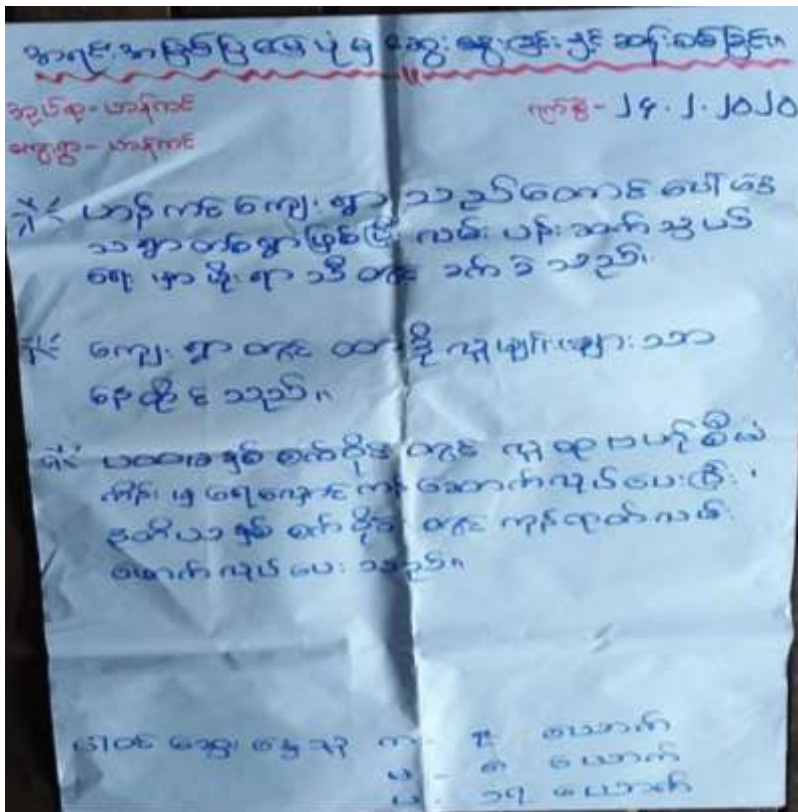 အရင်းအမြစ်ပြမြေပုံမှ ဆွေးနွေးခြင်းနှင့် ဆန်းစစ်ခြင်း။
အုပ်စု - ဟန်ကင်
ကျေးရွာ - ဟန်ကင်
ရက်စွဲ - ၂၄.၂.၂၀၂၀
ဟန်ကင်ကျေးရွာသည်တောင်ပေါ်နေ
သရွာတစ်ရွာဖြစ်ပြီး လမ်းပန်းဆက်သွယ်
ရေးမှာမိုးရာသီတွင် ခက်ခဲသည်။
ကျေးရွာတွင် လူမျိုးများသာ
နေထိုင်သည်။
ပထမနှစ်စက်ဝိုင်းတွင် လူထုဗဟိုပြုစီမံ
ကိန်းမှရေလှောင်ကန်ဆောက်လုပ်ပေးပြီး၊
ဒုတိယနှစ်စက်ဝိုင်းတွင် ကုန်ထုတ်လမ်း
ဖောက်လုပ်ပေးသည်။
ပါဝင်ဆွေးနွေးသူ ကျား - ယောက်
မ - ယောက်
ပ - ၁၅ ယောက်